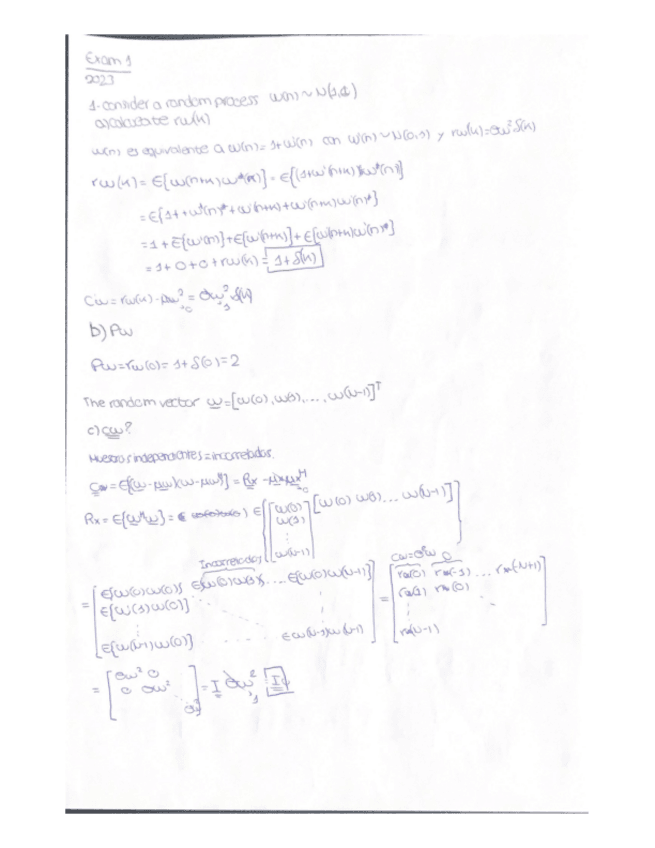 Exam 1
2023
1. Consider a random process w(n) ~ N(1,1)
a) calculate rw(k)
w(n) es equivalente a w(n) = 1+w'(n) con w'(n) ~ N(0,1) y rw'(k)=σw²δ(k)
rw(k) = E[w(n+k)w*(n)] = E{(1+w'(n+k))
= E{1+ +w'(n)*+w'(n+k)+w'(n+k)w'(n)*]
= 1+E[w'(n)]+E[w'(n+k)]+E[w'(n+k)w'(n)*]
= 1+0+0+rw(k) = 1+δ(k)
Cw = rw(k) - μw² = σw² δ(k)
b) Pw
Pw = rw(0) = 1+δ(0) = 2
The random vector w = [w(0), w(1), ..., w(N-1)]ᵀ
c) Cw?
Muestras independientes = incorreladas.
Cw = E[(w-μw)(w-μw)ᴴ] = Rx - μxμxᴴ
Rx = E{ } = E{ [w(0) w(1) ... w(N-1)] }
w(0)
w(1)
⋮
w(N-1)
Incorreladas
Cw=σ²w 0
= [E{w(0)w(0)} E{w(0)w(1)}, ... E{w(0)w(N-1)}] = [rx(0) rx(-1) ... rx(-N+1)]
E{w(1)w(0)} rx(1) rx(0)
E{w(N-1)w(0)} E w(N-1)w(N-1) rx(N-1)
= [σw² 0
0 σw²
σw²] = I σw²